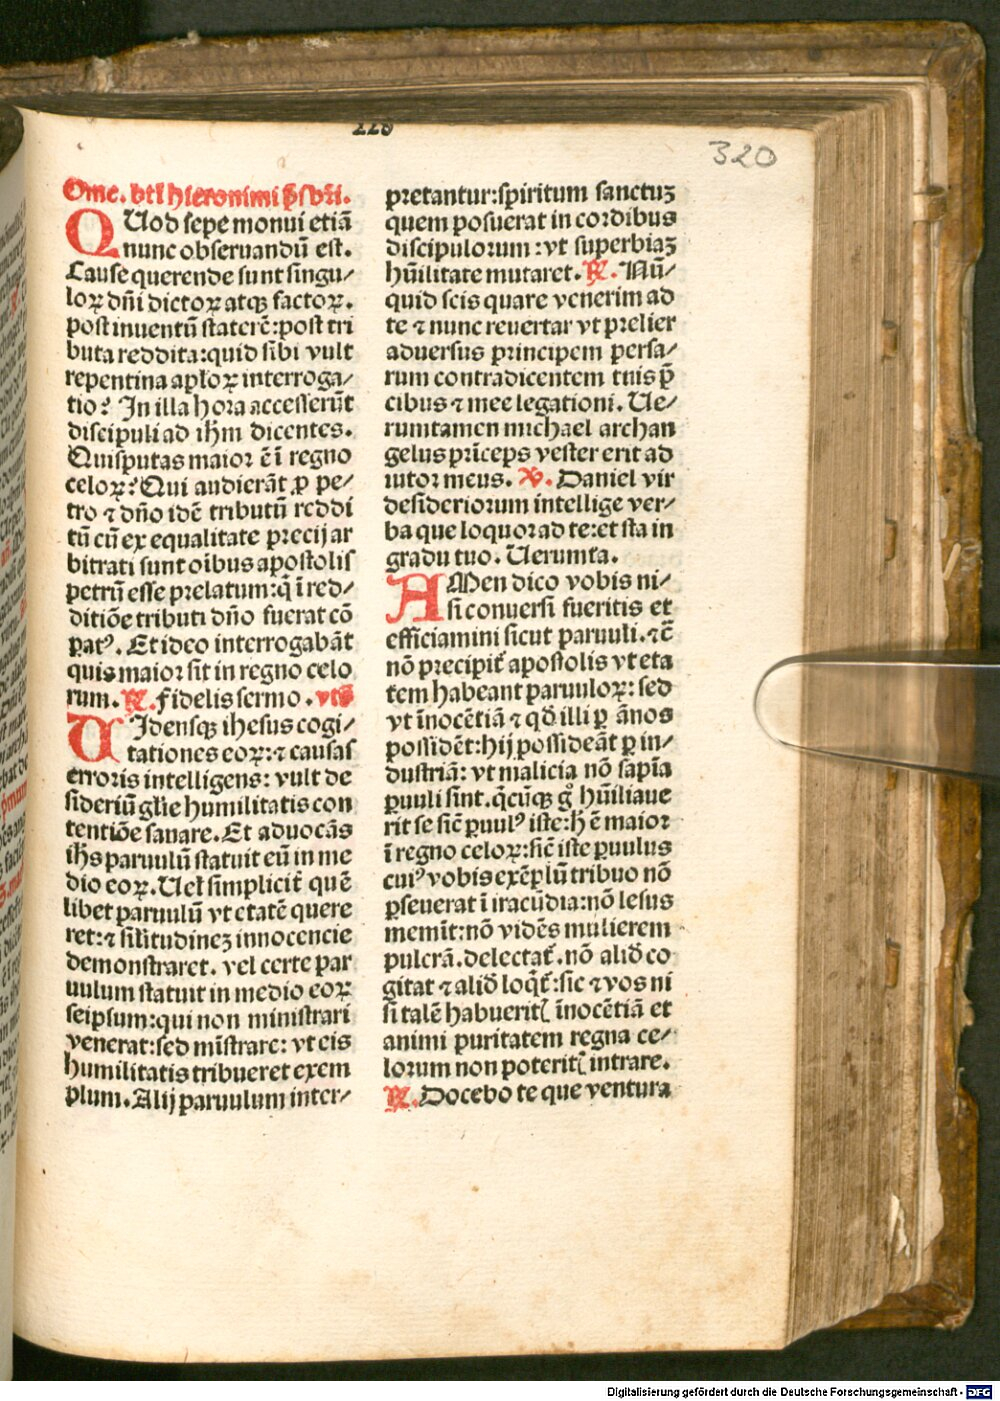 320
Ome. btĩ hieronimi p̃sbr̃i.
QUod sepe monui etiã
nunc obseruandũ est.
Cause querende sunt singu/
loꝝ dñi dictoꝝ atqꝫ factoꝝ.
post inuentũ staterẽ: post tri
buta reddita: quid sibi vult
repentina aplõꝝ interroga/
tio? In illa hora accesserũt
discipuli ad ihm̃ dicentes.
Quis putas maior ẽ ĩ regno
celoꝝ? Qui audierãt ꝓ pe/
tro ⁊ dño idẽ tributũ reddi
tũ cũ ex equalitate precij ar
bitrati sunt oĩbus apostolis
petrũ esse prelatum: q̃ ĩ red/
ditiõe tributi dño fuerat cõ
ꝑatꝰ. Et ideo interrogabãt
quis maior sit in regno celo
rum. ℟. Fidelis sermo. vts̃
UIdensqꝫ ihesus cogi/
tationes eoꝝ: ⁊ causas
erroris intelligens: vult de
sideriũ glĩe humilitatis con
tentiõe sanare. Et aduocãs
ihs̃ paruulũ statuit eũ in me
dio eoꝝ. Uel simplicit̃ quẽ
libet paruulũ vt etatẽ quere
ret: ⁊ sil̃itudineꝫ innocencie
demonstraret. vel certe par
uulum statuit in medio eoꝝ
seipsum: qui non ministrari
venerat: sed mĩstrare: vt eis
humilitatis tribueret exem
plum. Alij paruulum inter/
pretantur: spiritum sanctuꝫ
quem posuerat in cordibus
discipulorum: vt superbiaꝫ
hũilitate mutaret. ℟. Nũ/
quid scis quare venerim ad
te ⁊ nunc reuertar vt prelier
aduersus principem persa/
rum contradicentem tuis p̃
cibus ⁊ mee legationi. Ue/
rumtamen michael archan
gelus pri̇ceps vester erit ad
iutor meus. ℣. Daniel vir
desideriorum intellige ver/
ba que loquor ad te: et sta in
gradu tuo. Uerumta.
AMen dico vobis ni/
si conuersi fueritis et
efficiamini sicut paruuli. ⁊c̃
nõ precipit̃ apostolis vt eta
tem habeant paruuloꝝ: sed
vt inocẽtiã ⁊ qd̃ illi ꝑ ãnos
possidẽt: hij possideãt ꝑ in/
dustriã: vt malicia nõ sapĩa
ꝑuuli sint. q̃cũqꝫ gͦ hũiliaue
rit se sic̃ ꝑuulꝰ iste: h̃ ẽ maior
ĩ regno celoꝝ: sic̃ iste ꝑuulus
cuiꝰ vobis exẽplũ tribuo nõ
ꝑseuerat ĩ iracũdia: nõ lesus
memĩt: nõ vidẽs mulierem
pulcrã. delectat̃. nõ alid̃ co
gitat ⁊ alid̃ loqt̃: sic ⁊ vos ni
si talẽ habuerit̃ inocẽtiã et
animi puritatem regna ce/
lorum non poterit̃ intrare.
℟. Docebo te que ventura
Digitalisierung gefördert durch die Deutsche Forschungsgemeinschaft - DFG